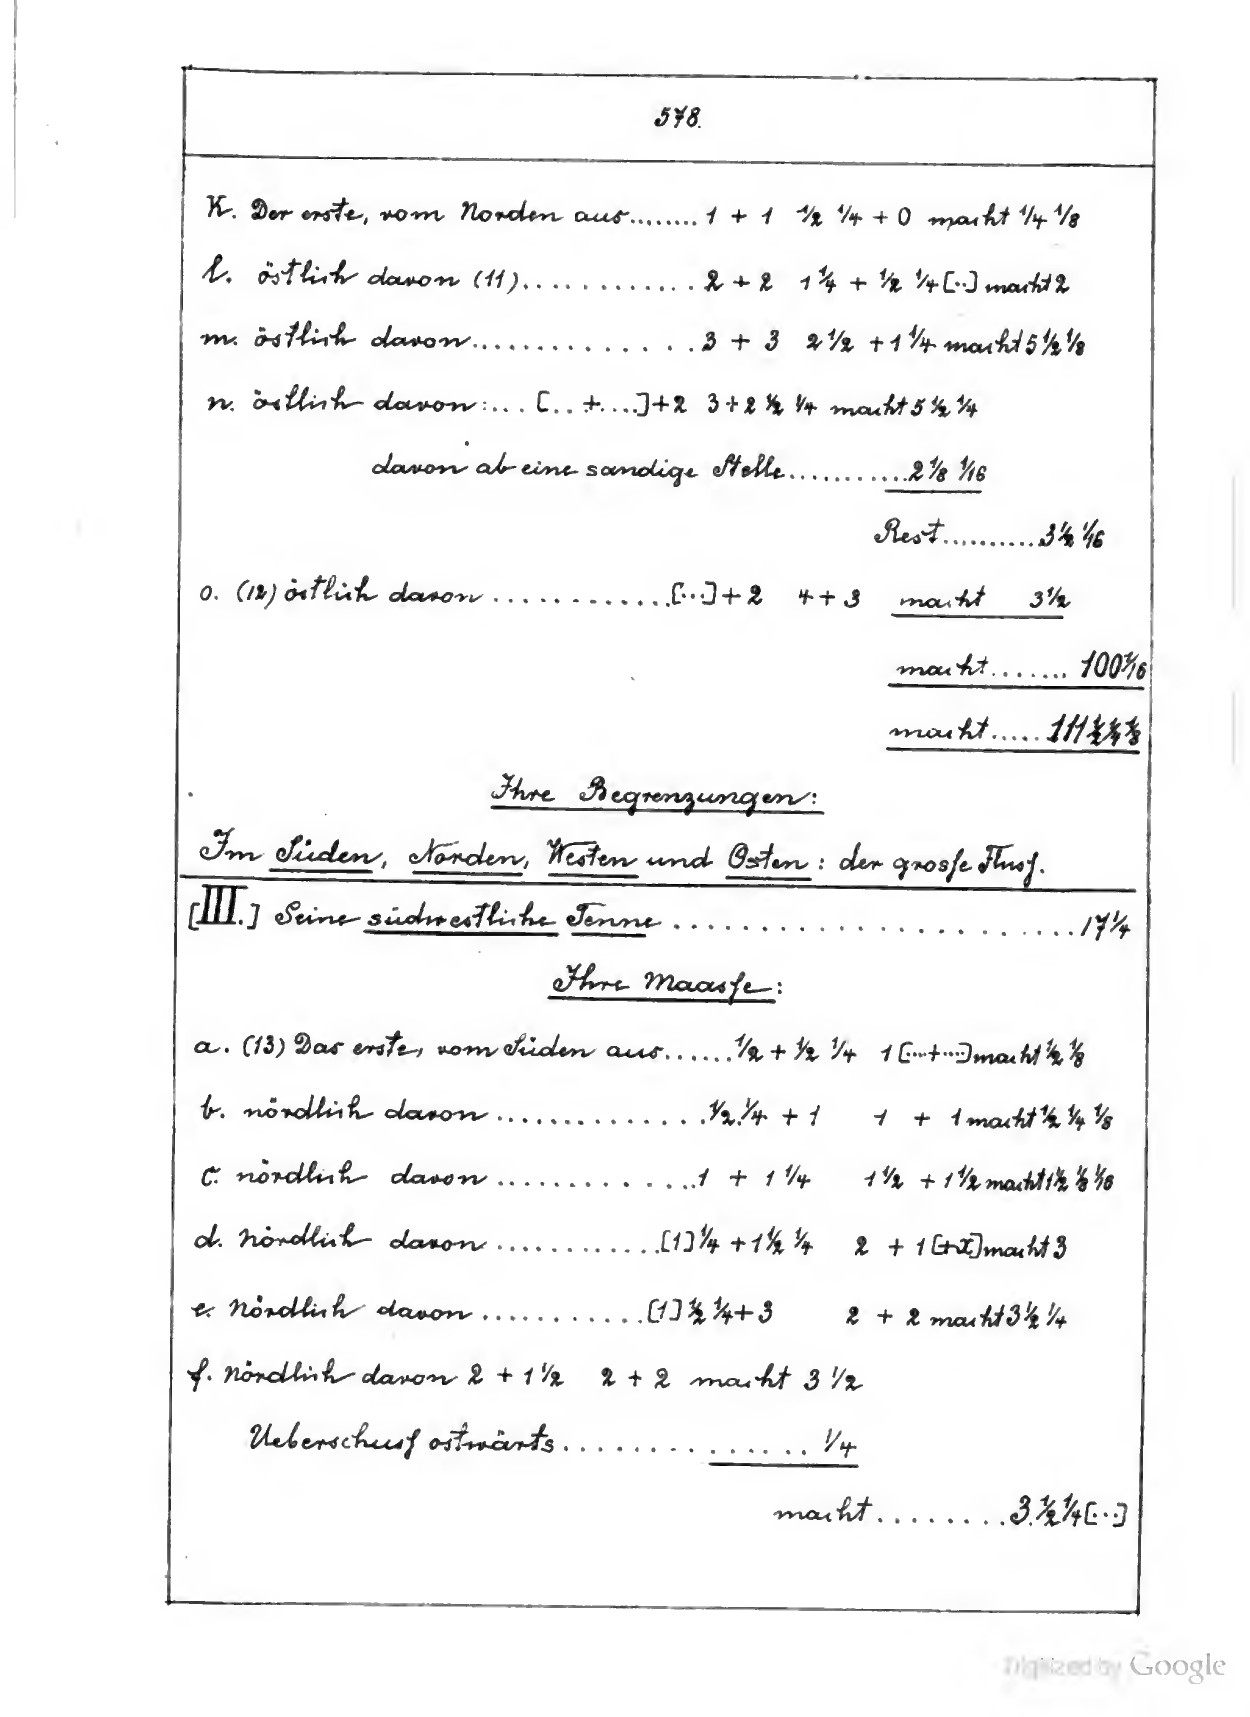 578.
K. Der erste, vom Norden aus........1 + 1 ½ ¼ + 0 macht ¼ ⅛
l. östlich davon (11)..............2 + 2 1 ¼ + ½ ¼ [..] macht 2
m. östlich davon...............3 + 3 2 ½ + 1 ¼ macht 5 ½ ⅛
n. östlich davon:... [.. + ....] + 2 3 + 2 ½ ¼ macht 5 ½ ¼
davon ab eine sandige Stelle...........2 ⅛ 1/16
Rest..........3 ½ 1/16
o. (12) östlich davon.............[...] + 2 4 + 3 macht 3 ½
macht....... 100 1/16
macht..... 111 ½ ¼ ⅛
Ihre Begrenzungen:
Im Süden, Norden, Westen und Osten : der grosse Fluss.
[III.] Seine südwestliche Tenne.......................17 ¼
Ihre Maasse:
a. (13) Das erste, vom Süden aus......½ + ½ ¼ 1 [...+...] macht ½ ⅛
b. nördlich davon..............½ ¼ + 1 1 + 1 macht ½ ¼ ⅛
c. nördlich davon..............1 + 1 ¼ 1 ½ + 1 ½ macht 1 ½ ⅛ 1/16
d. Nördlich davon............[1] ¼ + 1 ½ ¼ 2 + 1 [+x] macht 3
e. Nördlich davon............[1] ½ ¼ + 3 2 + 2 macht 3 ½ ¼
f. Nördlich davon 2 + 1 ½ 2 + 2 macht 3 ½
Ueberschuss ostwärts.............. ¼
macht........3 ½ ¼ [..]
Digitized by Google